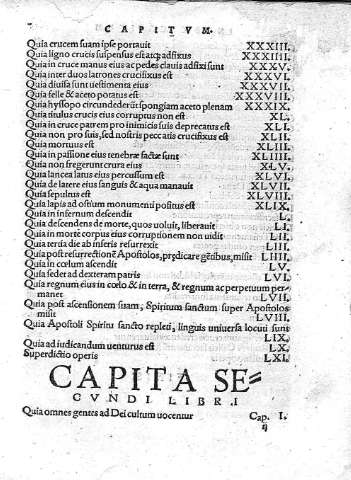 CAPITVM.
Quia crucem suam ipse portauit XXXIII.
Quia ligno crucis suspensus est atq; adfixus XXXIIII.
Quia in cruce manus eius ac pedes clauis adfixi sunt XXXV.
Quia inter duos latrones crucifixus est XXXVI.
Quia diuisa sunt uestimenta eius XXXVII.
Quia felle & aceto potatus est XXXVIII.
Quia hyssopo circundederūt spongiam aceto plenam XXXIX.
Quia titulus crucis eius corruptus non est XL.
Quia in cruce patrem pro inimicis suis deprecatus est XLI.
Quia non pro suis, sed nostris peccatis crucifixus est XLII.
Quia mortuus est XLIII.
Quia in passione eius tenebræ factæ sunt XLIIII.
Quia non fregerunt crura eius XLV.
Quia lancea latus eius percussum est XLVI.
Quia de latere eius sanguis & aqua manauit XLVII.
Quia sepultus est XLVIII.
Quia lapis ad ostium monumenti positus est XLIX.
Quia in infernum descendit L.
Quia descendens de morte, quos uoluit, liberauit LI.
Quia in morte corpus eius corruptionem non uidit LII.
Quia tertia die ab inferis resurrexit LIII.
Quia post resurrectionē Apostolos, prędicare gētibus, misit LIIII.
Quia in cœlum ascendit LV.
Quia sedet ad dexteram patris LVI.
Quia regnum eius in cœlo & in terra, & regnum ac perpetuum per-
manet LVII.
Quia post ascensionem suam, Spiritum sanctum super Apostolos
misit LVIII.
Quia Apostoli Spiritu sancto repleti, linguis uniuersa locuti sunt
LIX.
Quia ad iudicandum uenturus est LX.
Superdictio operis LXI.
CAPITA SE=
CVNDI LIBRI
Quia omnes gentes ad Dei cultum uocentur Cap. I.